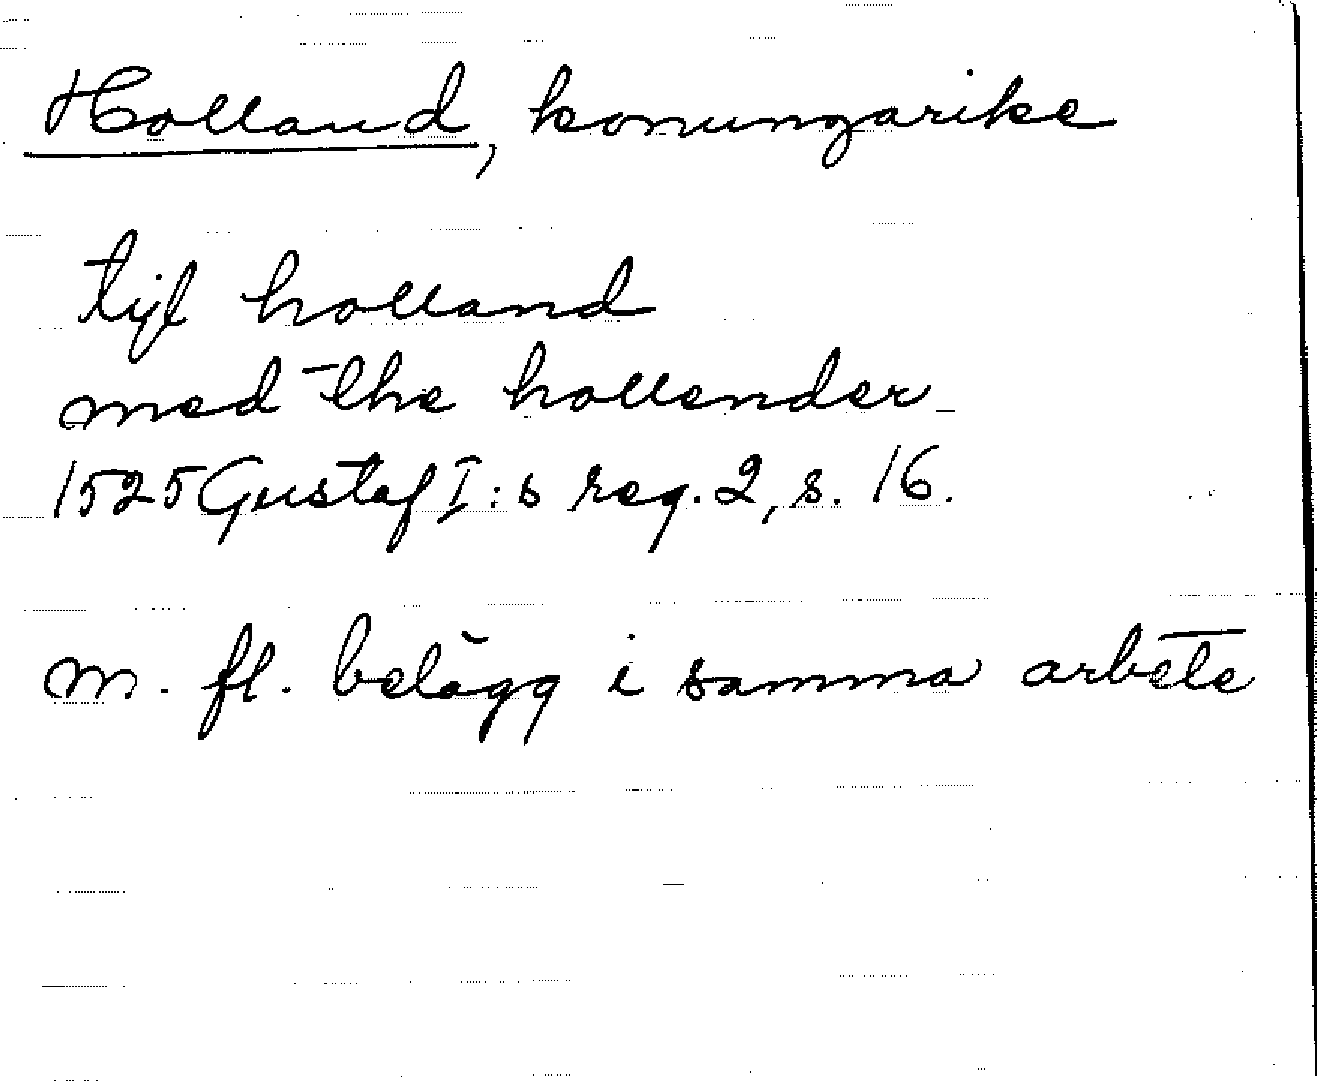 Holland, konungarike
tijl holland
med the hollender
1525 Gustaf I:s reg. 2, s. 16.
m. fl. belägg i samma arbete